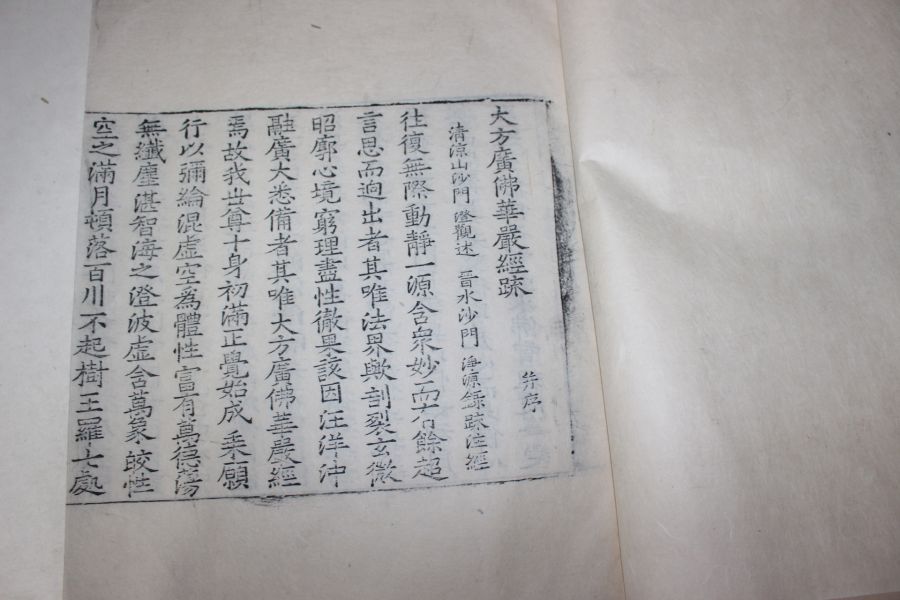 大方廣佛華嚴經䟽 并序
清涼山沙門 澄觀述 晉水沙門 淨源錄䟽注經
往復無際動靜一源含衆妙而有餘超
言思而逈出者其唯法界歟剖裂玄微
昭廓心境窮理盡性徹果該因汪洋沖
融廣大悉備者其唯大方廣佛華嚴經
焉故我世尊十身初滿正覺始成乘願
行以彌綸混虛空爲體性富有萬德蕩
無纖塵湛智海之澄波虛含萬象皎性
空之滿月頓落百川不起樹王羅七處